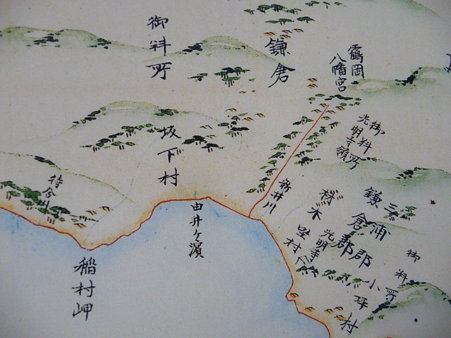 鶴岡
八幡宮
鎌倉
御料所
御料所
光明寺領
坂下村
由井ヶ濱
稲村岬
三浦郡
鎌倉郡
材木座村
光明寺
御料所
小坪村